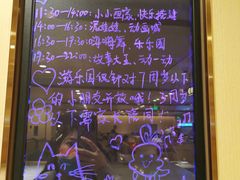 11:30-14:00: 小小画家、快乐搭建
14:00-16:30: 泥娃娃、动画城
16:30-19:30: 嗨嗨舞、乐乐园
19:30-22:00: 故事大王、动一动
游乐园仅针对7周岁以下
的小朋友开放哦！3周岁
以下需家长陪同！